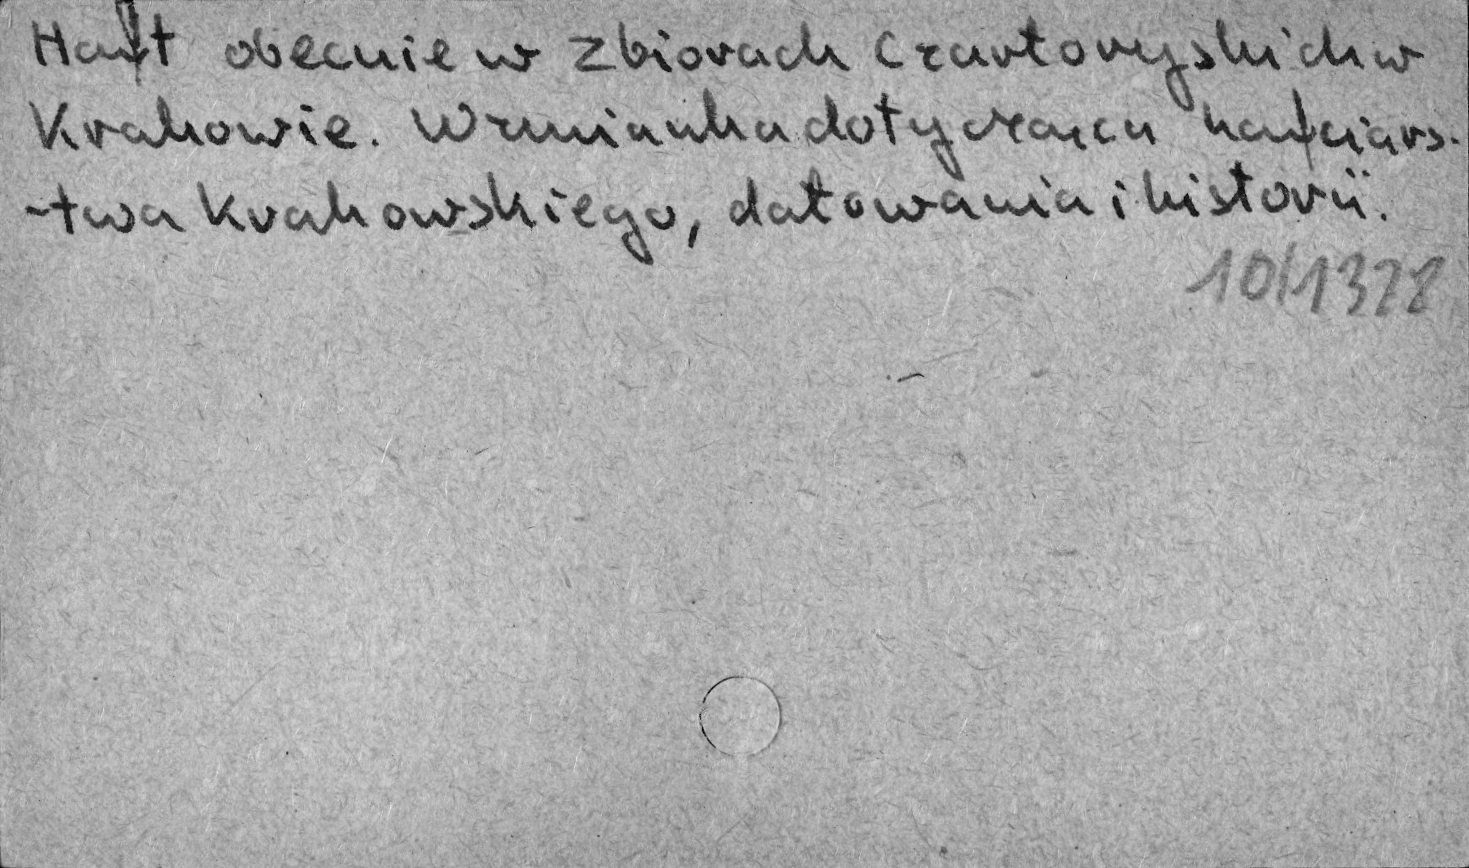 Haft obecnie w Zbiorach Czartoryskich w
Krakowie. Wzmianka dotycząca hafciars-
-twa krakowskiego, datowania i historii.
10/1328